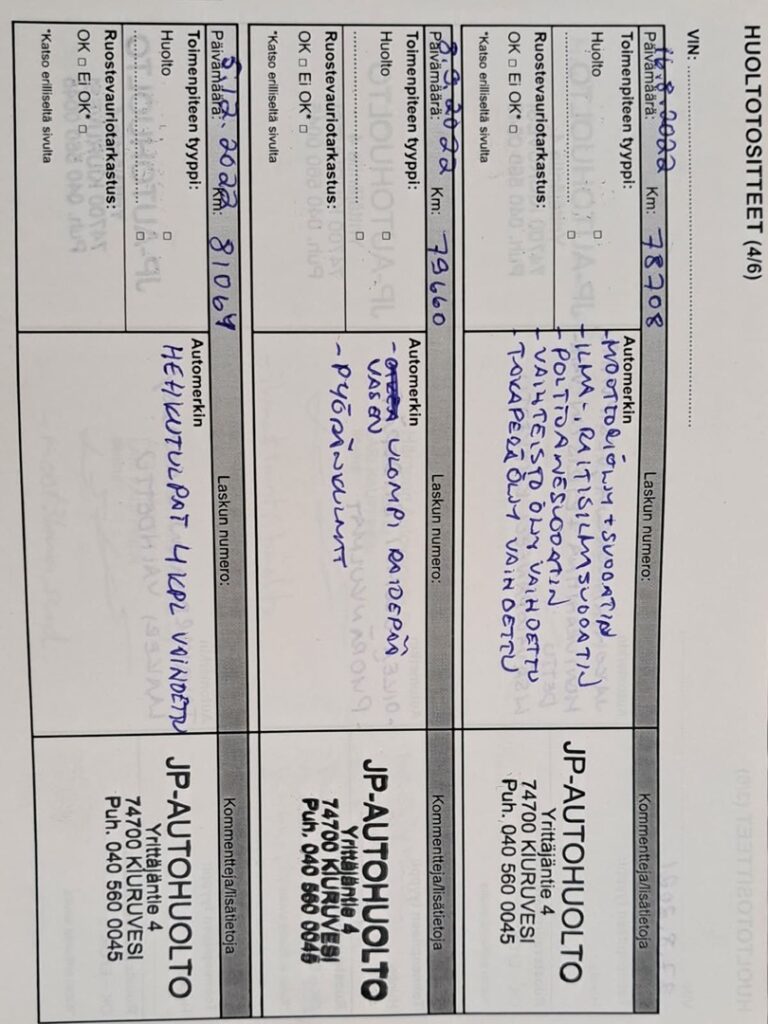 HUOLTOTOSITTEET (4/6)
VIN:
Päivämäärä: 16.8.2022 Km: 78708 Laskun numero: Kommentteja/lisätietoja
Toimenpiteen tyyppi:
Huolto □
□
Ruostevauriotarkastus:
OK □ Ei OK* □
*Katso erilliseltä sivulta
Automerkin
- MOOTTORIÖLJY + SUODATIN
- ILMA-, RAITISILMSUODATIN
- POLTTOAINESUODATIN
- VAIHTEISTO ÖLJY VAIHDETTU
- TAKAPERÄ ÖLJY VAIHDETTU
JP-AUTOHUOLTO
Yrittäjäntie 4
74700 KIURUVESI
Puh. 040 560 0045
Päivämäärä: 8.9.2022 Km: 79660 Laskun numero: Kommentteja/lisätietoja
Toimenpiteen tyyppi:
Huolto □
□
Ruostevauriotarkastus:
OK □ Ei OK* □
*Katso erilliseltä sivulta
Automerkin
- ULOMPI RAIDEPÄÄ
VASEN
- PYÖRÄNKULMAT
JP-AUTOHUOLTO
Yrittäjäntie 4
74700 KIURUVESI
Puh. 040 560 0045
Päivämäärä: 5.12.2022 Km: 81064 Laskun numero: Kommentteja/lisätietoja
Toimenpiteen tyyppi:
Huolto □
□
Ruostevauriotarkastus:
OK □ Ei OK* □
*Katso erilliseltä sivulta
Automerkin
HEHKUTULPAT 4 KPL VAIHDETTU
JP-AUTOHUOLTO
Yrittäjäntie 4
74700 KIURUVESI
Puh. 040 560 0045